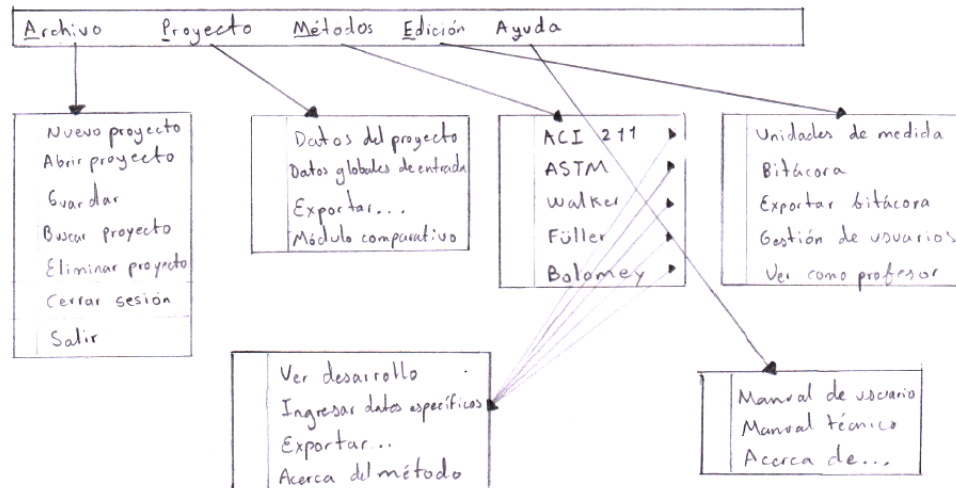 Archivo Proyecto Métodos Edición Ayuda
Nuevo proyecto
Abrir proyecto
Guardar
Buscar proyecto
Eliminar proyecto
Cerrar sesión
Salir
Datos del proyecto
Datos globales de entrada
Exportar...
Módulo comparativo
ACI 211
ASTM
Walker
Füller
Bolomey
Unidades de medida
Bitácora
Exportar bitácora
Gestión de usuarios
Ver como profesor
Ver desarrollo
Ingresar datos específicos
Exportar...
Acerca del método
Manual de usuario
Manual técnico
Acerca de...